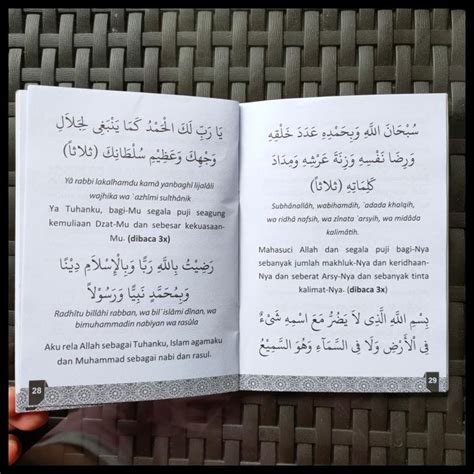 يَا رَبِّ لَكَ الْحَمْدُ كَمَا يَنْبَغِى لِجَلَالِ
وَجْهِكَ وَعَظِيْمِ سُلْطَانِكَ (ثَلَاثاً)
Yâ rabbi lakalhamdu kamâ yanbaghî lijalâli
wajhika wa `azhîmi sulthânik
Ya Tuhanku, bagi-Mu segala puji seagung
kemuliaan Dzat-Mu dan sebesar kekuasaan-
Mu. (dibaca 3x)
رَضِيْتُ بِاللَّهِ رَبًّا وَبِالْإِسْلَامِ دِيْنًا
وَبِمُحَمَّدٍ نَبِيًّا وَرَسُوْلاً
Radhîtu billâhi rabban, wa bil`islâmi dînan, wa
bimuhammadin nabiyan wa rasûla
Aku rela Allah sebagai Tuhanku, Islam agamaku
dan Muhammad sebagai nabi dan rasul.
28
سُبْحَانَ اللَّهِ وَبِحَمْدِهِ عَدَدَ خَلْقِهِ
وَرِضَا نَفْسِهِ وَزِنَةَ عَرْشِهِ وَمِدَادَ
كَلِمَاتِهِ (ثَلَاثاً)
Subhânallâh, wabihamdih, `adada khalqih,
wa ridhâ nafsih, wa zînata `arsyih, wa midâda
kalimâtih.
Mahasuci Allah dan segala puji bagi-Nya
sebanyak jumlah makhluk-Nya dan keridhaan-
Nya dan seberat Arsy-Nya dan sebanyak tinta
kalimat-Nya. (dibaca 3x)
بِسْمِ اللَّهِ الَّذِى لَا يَضُرُّ مَعَ اسْمِهِ شَىْءٌ
فِى الْأَرْضِ وَلَا فِى السَّمَآءِ وَهُوَ السَّمِيْعُ
29